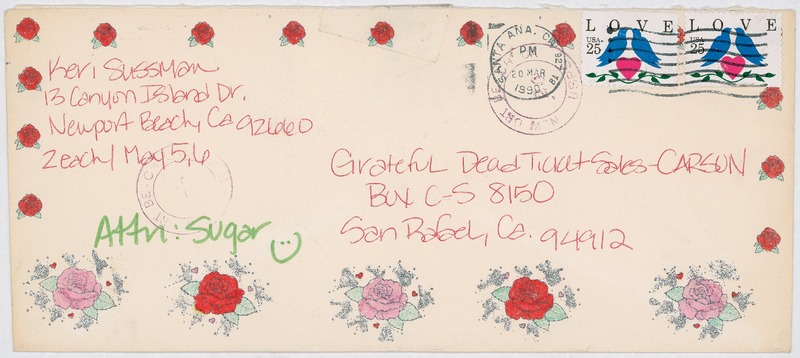 Keri Sussman
13 Canyon Island Dr.
Newport Beach, Ca 92660
2 each / May 5,6
Attn: Sugar
Grateful Dead Ticket Sales-CARSON
Box C-S 8150
San Rafael, Ca. 94912
SANTA ANA, CA 927
PM
20 MAR
1990
LOVE
USA
25
LOVE
USA
25